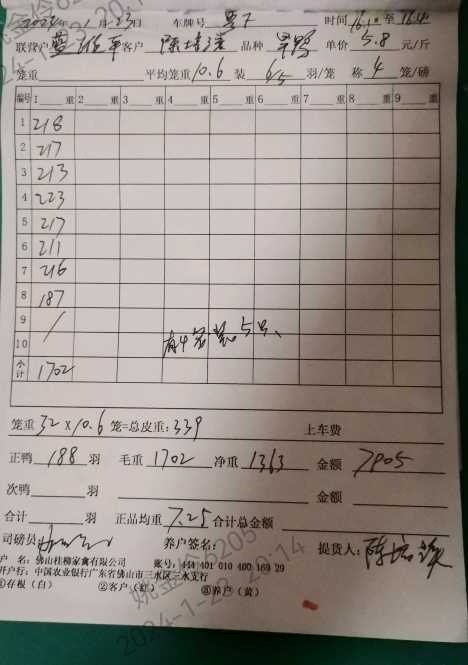 2024年1月23日 车牌号 时间16.10至16.40
联营户 客户 陈培 品种 旱鸭 单价5.8元/斤
笼重 平均笼重10.6 装6/5羽/笼 称4笼/磅
编号 1 重 2 重 3 重 4 重 5 重 6 重 7 重 8 重 9 重
1 218
2 217
3 213
4 223
5 217
6 211
7 216
8 187
9 /
10 有4笼装5只
小计 1702
笼重32×10.6笼=总皮重:339 上车费
正鸭188羽 毛重1702 净重1363 金额7905
次鸭 羽 金额
合计 羽 正品均重7.25 合计总金额
司磅员 养户签名: 提货人:陈培
户 名:佛山桂柳家禽有限公司 账号:444 401 010 400 169 29
开户行:中国农业银行广东省佛山市三水区三水支行
①存根(白) ②客户(红) ③养户(黄)
姚金玲6205
2024-1-23 20:14